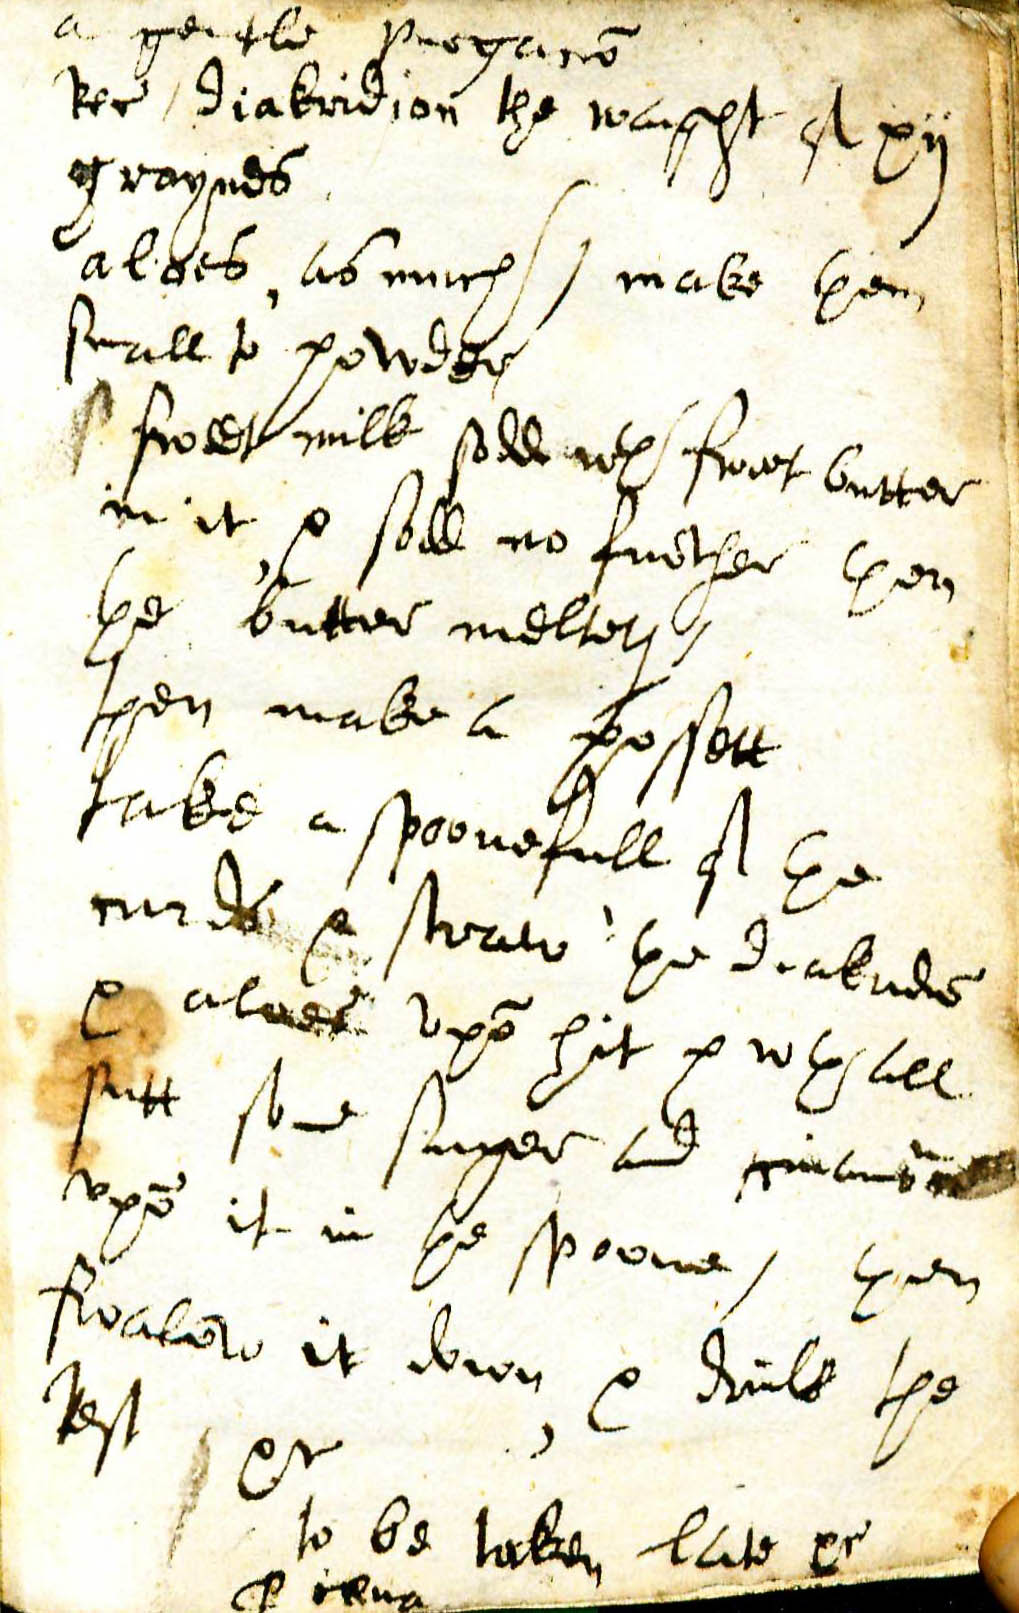 a gentle purgacō
Rec / diakridion the waught of xij
graynes
aloes, as much / make þem
small to powder
swett milk sodd wth swet butter
in it, & sodd no further þen
þe butter melteth /
then make a possett
take a spoonefull of þe
curds & strawe þe diakridiō
& aloes vpō hit & wth all
putt some suger and sinamōn
vpō it in þe spoone / þen
swalow it down, & drink the
Rest &c
to be taken late &c